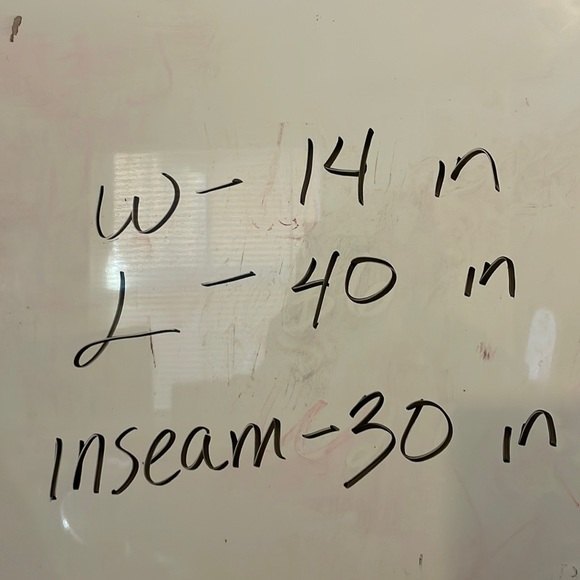 W- 14 in
L - 40 in
inseam-30 in